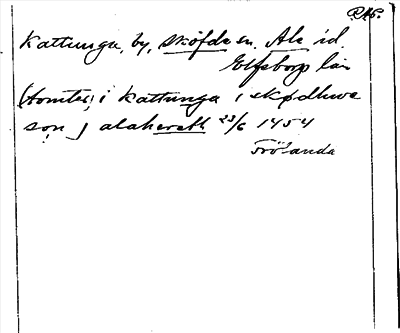 R.A.S.
Kattunga, by, Sköfde sn. Ale hd.
Elfsborgs län
(tomter) i kattunga i skødhwe
son j alaherath 23/6 1454
Frölanda